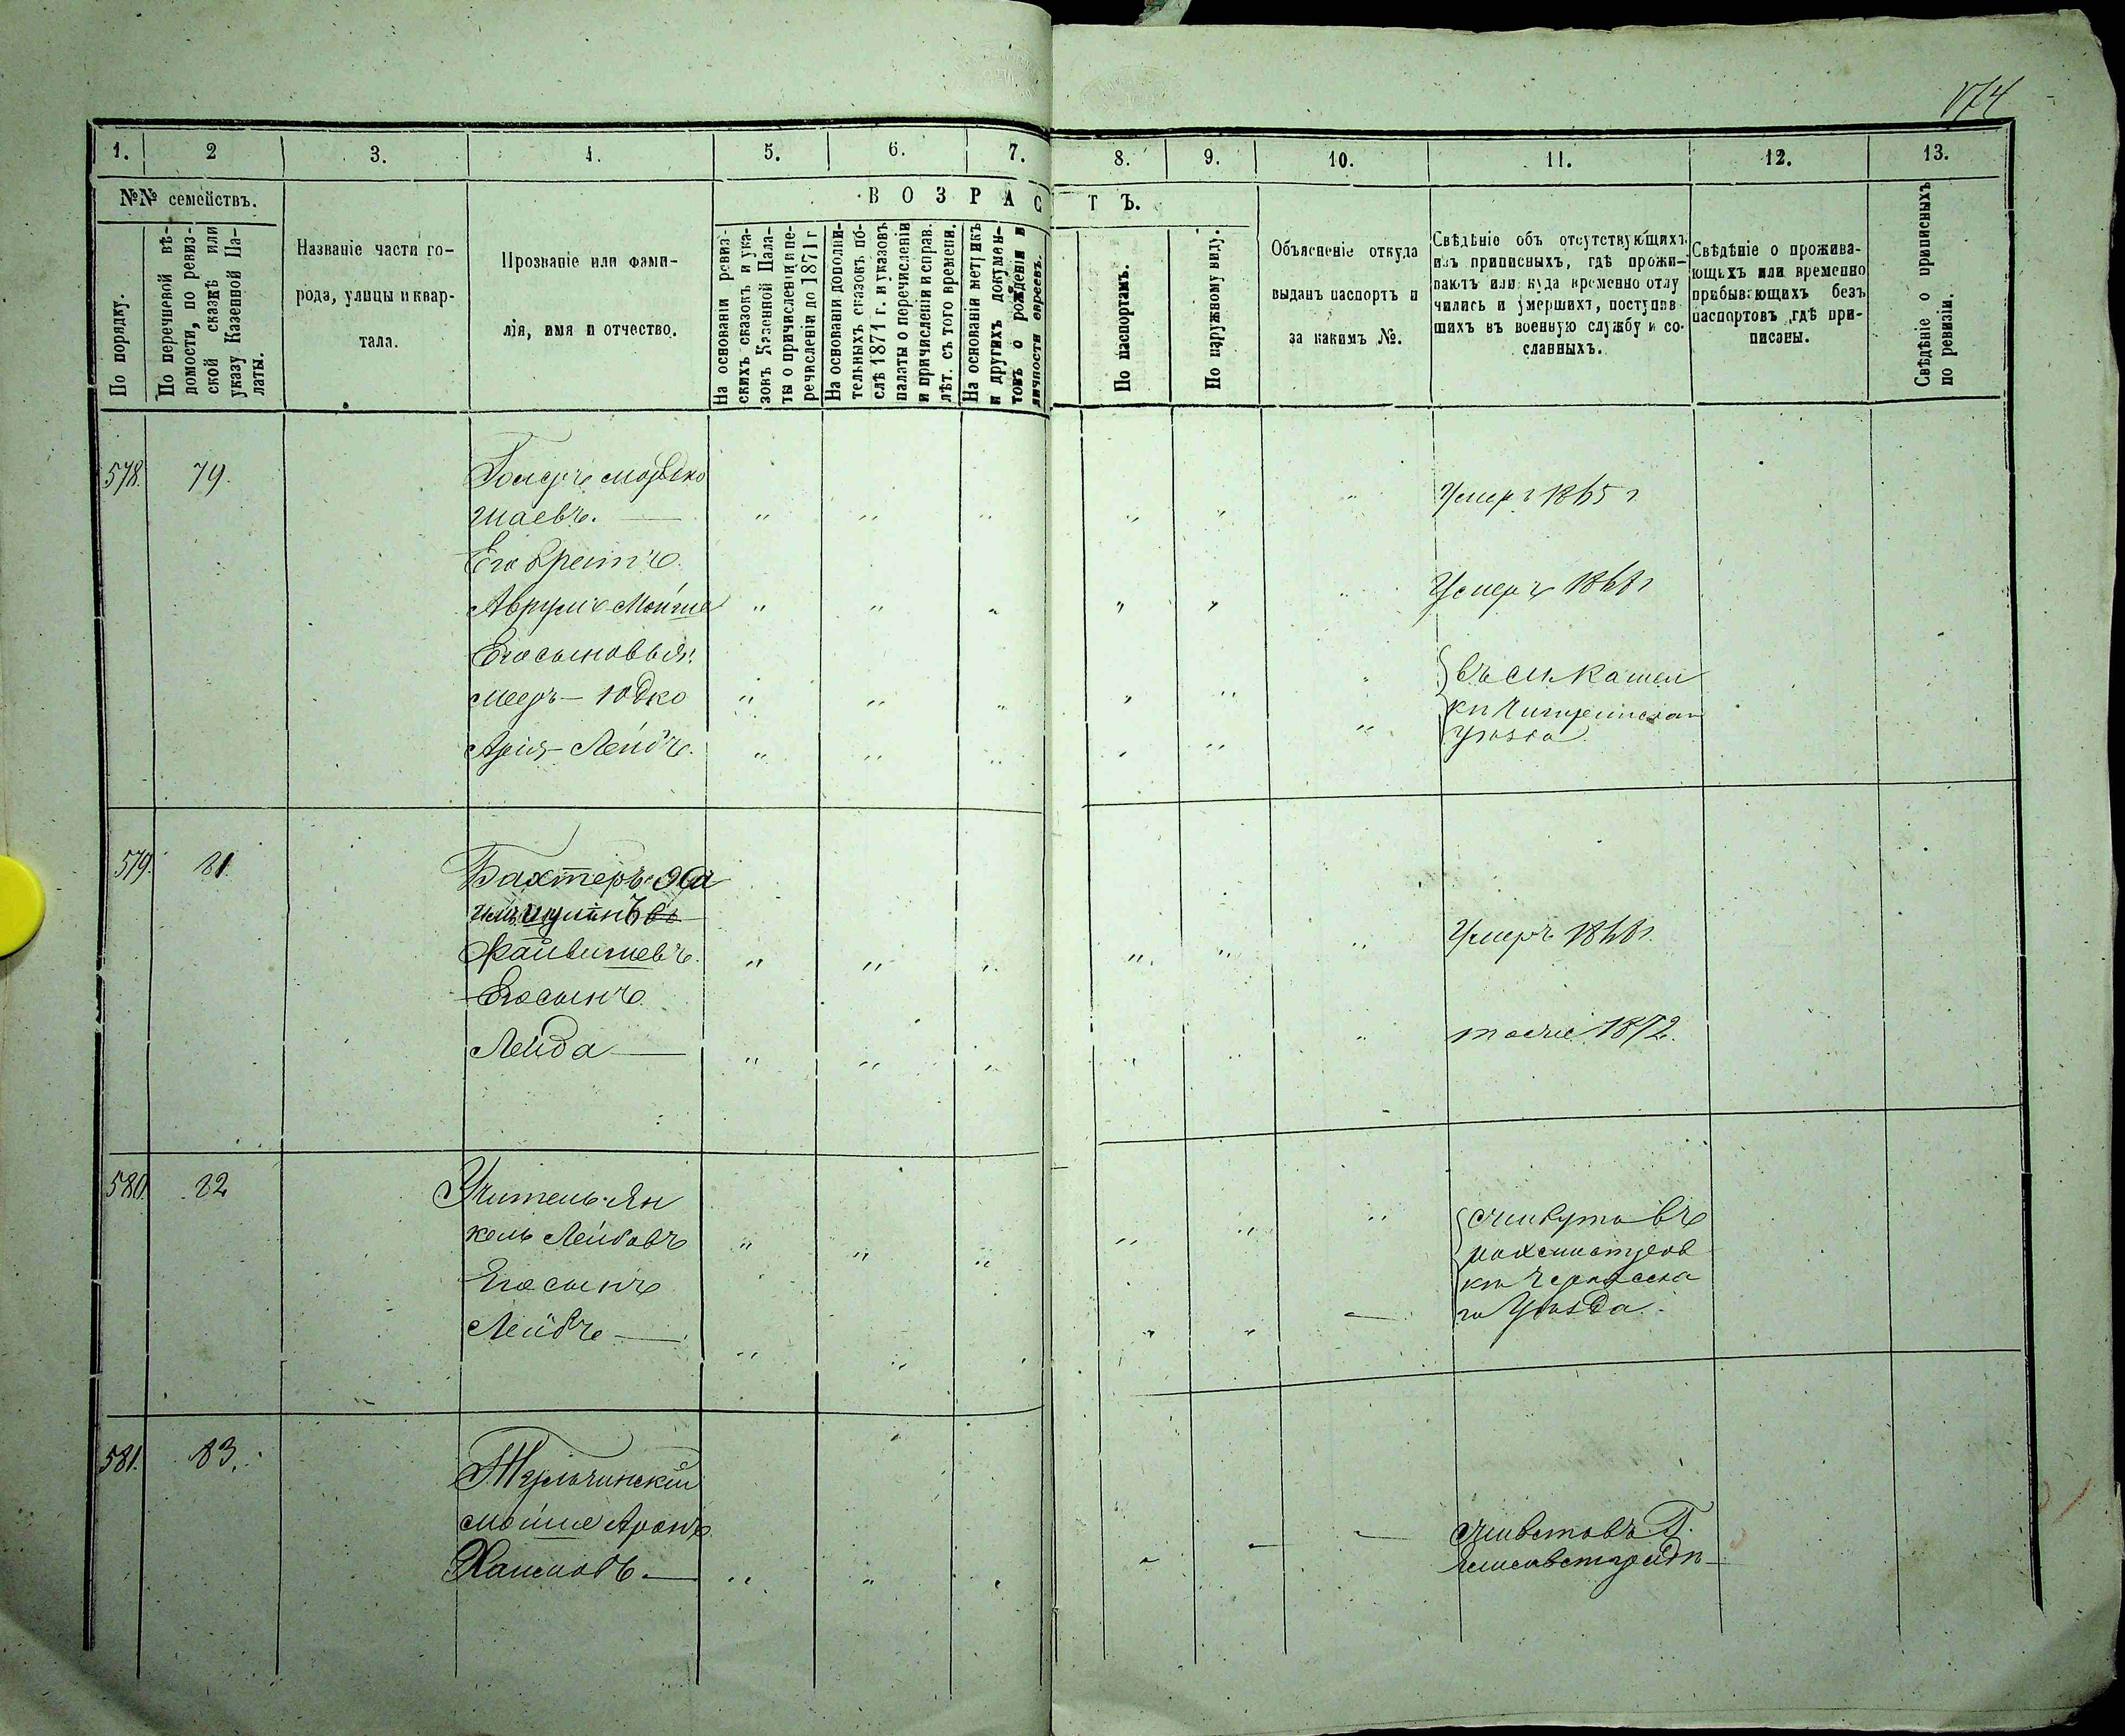 174
1. 2 3. 4. 5. 6. 7. 8. 9. 10. 11. 12. 13.
№№ семействъ.
По порядку.
По перечневой вѣ-
домости, по ревиз-
ской сказкѣ или
указу Казенной Па-
латы.
Названіе части го-
рода, улицы и квар-
тала.
Прозваніе или фами-
лія, имя и отчество.
ВОЗРАСТЪ.
На основаніи ревиз-
скихъ сказокъ и ука-
зокъ Казенной Пала-
ты о причисленіи и пе-
речисленіи до 1871 г
На основаніи дополни-
тельныхъ сказокъ по-
слѣ 1871 г. и указовъ
палаты о перечисленіи
и причисленіи и справ.
лѣт. съ того времени.
На основаніи метрикъ
и другихъ докумен-
товъ о рожденіи и
личности евреевъ.
По паспортамъ.
По наружному виду.
Объясненіе откуда
выданъ паспортъ и
за какимъ №.
Свѣдѣніе объ отсутствующихъ
изъ приписныхъ, гдѣ прожи-
ваютъ или куда временно отлу
чились и умершихъ, поступив
шихъ въ военную службу и со-
сланныхъ.
Свѣдѣніе о прожива-
ющихъ или временно
прибывающихъ безъ
паспортовъ гдѣ при-
писаны.
Свѣдѣніе о приписныхъ
по ревизіи.
578. 79. Мордко
Шаевъ. Умеръ 1865 г
Его братъ
Аврумъ Мойше Умеръ 1868 г
Его сыновья:
Мееръ — Юдко
Арія — Лейбъ.
уѣзда
579. 81. Бахтеръ
Файвишевъ. Умеръ 1868 г.
Его сынъ
Лейба тоже 1872.
580. 82 Учитель Ян
кель Лейбовъ
Его сынъ
Лейбъ
живутъ въ
Черкасска
го Уѣзда.
581. 83. Тульчинскій
Мойше Аронъ
Хаимовъ живетъ въ Г.